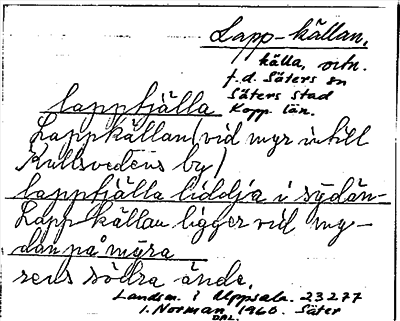 Lapp-källan,
källa, oitn.
f.d. Säters sn
Säters stad
Kopp. län.
lappţjälla
Lappkällan (vid myr intill
Kullsvedens by)
lappţjälla liddja i sydän-
Lappkällan ligger vid my-
dan på myra
rens södra ände.
Landsm. i Uppsala. 23277
I. Norman 1960. Säter
DAL.